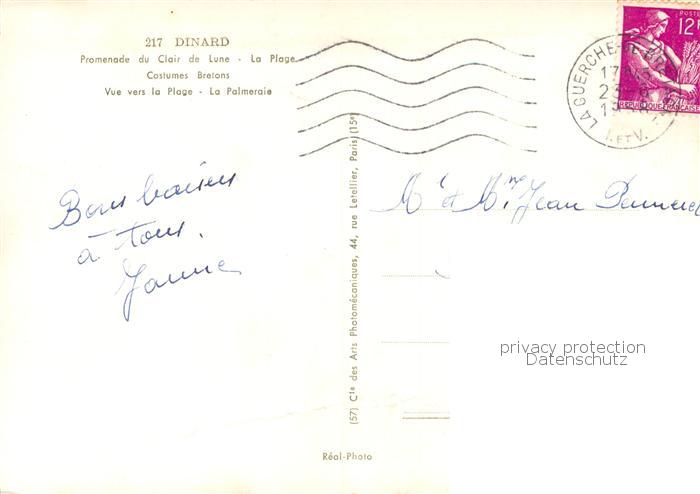 217 DINARD
Promenade du Clair de Lune - La Plage
Costumes Bretons
Vue vers la Plage - La Palmeraie
Bons baisers
à tous.
(57) Cie des Arts Photomécaniques, 44, rue Letellier, Paris (15e)
Réal-Photo
LA GUERCHE-DE-
I. ET V.
POSTES
12F
REPUBLIQUE FRANCAISE
Mr et Mme Jean
privacy protection
Datenschutz